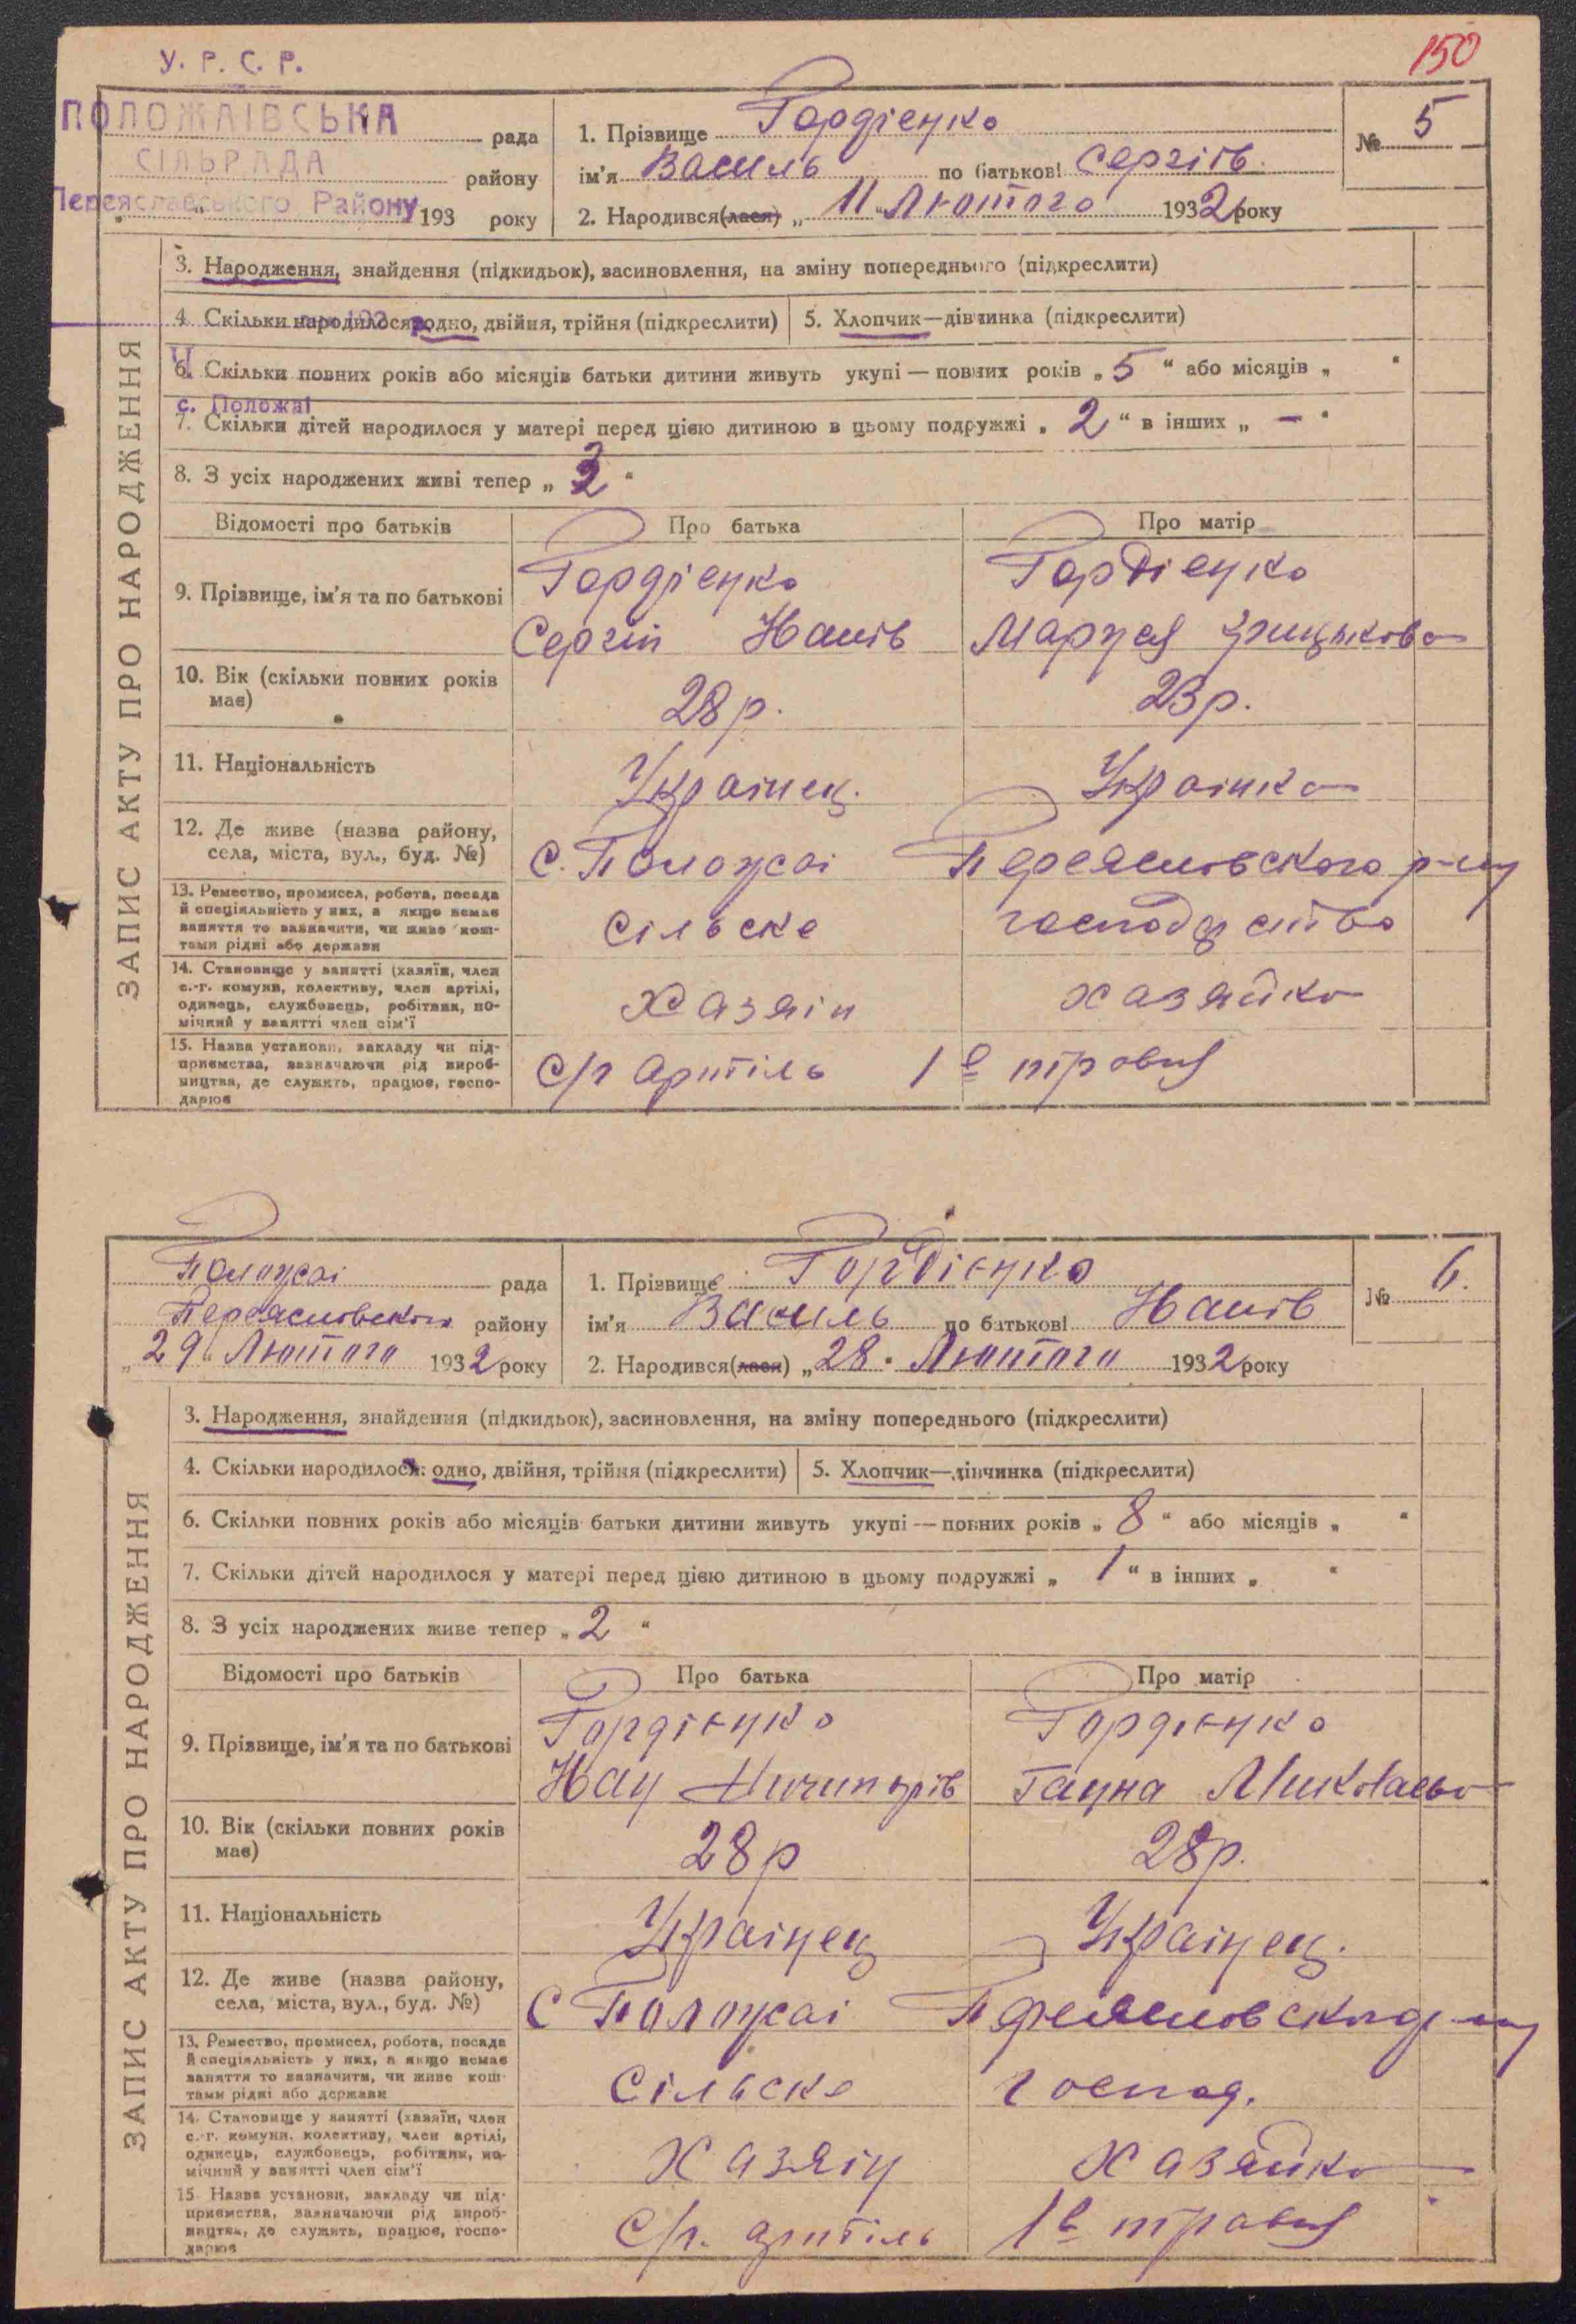 150
У. Р. С. Р.
ПОЛОЖАІВСЬКА рада
СІЛЬРАДА району
Переяславського Району 193 року
1. Прізвище Гордієнко
ім'я Василь по батькові Сергіїв.
2. Народився(лася) „ 11 " Лютого 1932 року
№ 5
ЗАПИС АКТУ ПРО НАРОДЖЕННЯ
3. Народження, знайдення (підкидьок), засиновлення, на зміну попереднього (підкреслити)
4. Скільки народилося: одно, двійня, трійня (підкреслити)
5. Хлопчик—дівчинка (підкреслити)
6. Скільки повних років або місяців батьки дитини живуть укупі — повних років „ 5 " або місяців „ "
с. Положаї
7. Скільки дітей народилося у матері перед цією дитиною в цьому подружжі „ 2 " в інших „ — "
8. З усіх народжених живі тепер „ 3 "
Відомості про батьків Про батька Про матір
9. Прізвище, ім'я та по батькові
Гордієнко Гордієнко
Сергій Наумів Маруся Грицькова
10. Вік (скільки повних років має) 28 р. 23 р.
11. Національність Українец. Українка
12. Де живе (назва району, села, міста, вул., буд. №) С. Положаі Переясловского р-ну
13. Ремество, промисел, робота, посада й спеціяльність у них, а якщо немає заняття то зазначити, чи живе коштами рідні або держави
Сільське господарство
14. Становище у занятті (хазяїн, член с.-г. комуни, колективу, член артілі, одинець, службовець, робітник, помічний у занятті член сім'ї
Хазяін хазяйка
15. Назва установи, закладу чи підприємства, зазначаючи рід виробництва, де служить, працює, господарює
С/г артіль 1е травня
Положаі рада
Переясловского району
„ 29 " Лютого 1932 року
1. Прізвище Гордієнко
ім'я Василь по батькові Наумів
2. Народився(лася) „ 28 " Лютого 1932 року
№ 6.
ЗАПИС АКТУ ПРО НАРОДЖЕННЯ
3. Народження, знайдення (підкидьок), засиновлення, на зміну попереднього (підкреслити)
4. Скільки народилося: одно, двійня, трійня (підкреслити)
5. Хлопчик—дівчинка (підкреслити)
6. Скільки повних років або місяців батьки дитини живуть укупі — повних років „ 8 " або місяців „ "
7. Скільки дітей народилося у матері перед цією дитиною в цьому подружжі „ 1 " в інших „ "
8. З усіх народжених живе тепер „ 2 "
Відомості про батьків Про батька Про матір
9. Прізвище, ім'я та по батькові
Гордієнко Гордієнко
Наум Ничипорів Ганна Миколаєва
10. Вік (скільки повних років має) 28 р 28 р.
11. Національність Українец Українец.
12. Де живе (назва району, села, міста, вул., буд. №) С Положаі Переясловского р-ну
13. Ремество, промисел, робота, посада й спеціяльність у них, а якщо немає заняття то зазначити, чи живе коштами рідні або держави
Сільське господ.
14. Становище у занятті (хазяїн, член с.-г. комуни, колективу, член артілі, одинець, службовець, робітник, помічний у занятті член сім'ї
Хазяін Хазяйка
15. Назва установи, закладу чи підприємства, зазначаючи рід виробництва, де служить, працює, господарює
С/г. артіль 1е травня